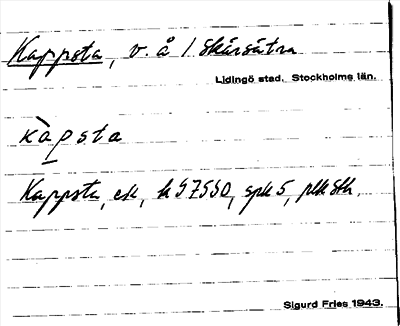 Kappsta, v. å / Skärsätra
Lidingö stad. Stockholms län.
kàpsta
Kappsta, ek, k 97550, spk 5, plk Sth.
Sigurd Fries 1943.